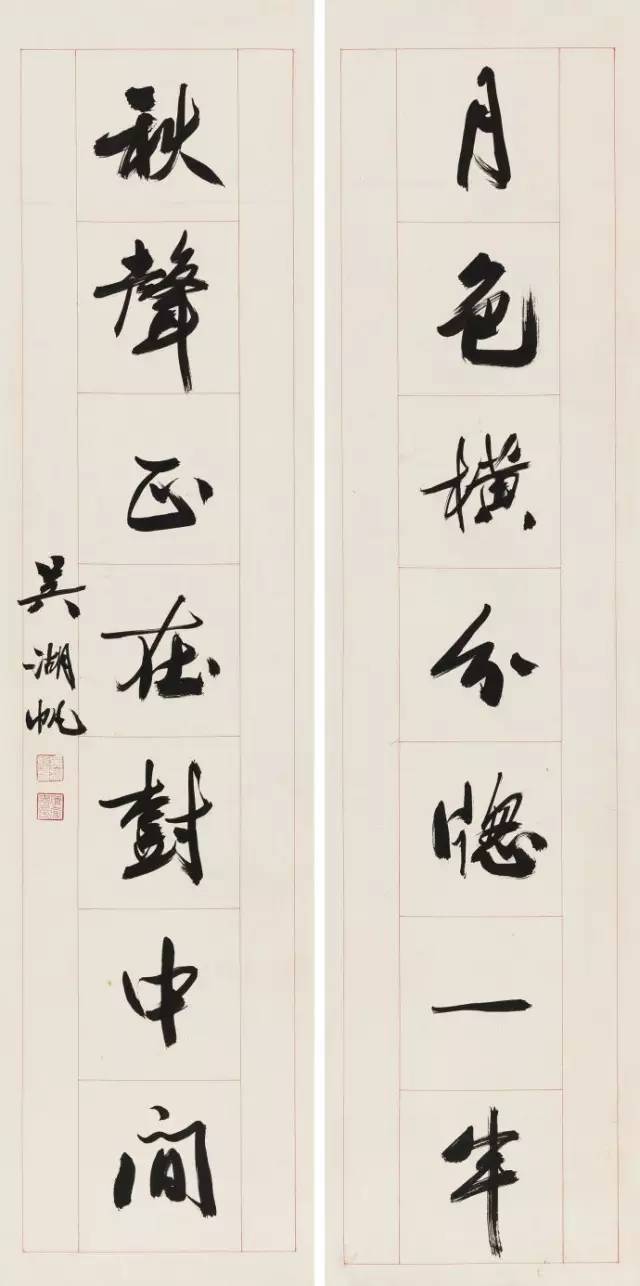 月色横分牕一半
秋聲正在樹中間
吴湖帆